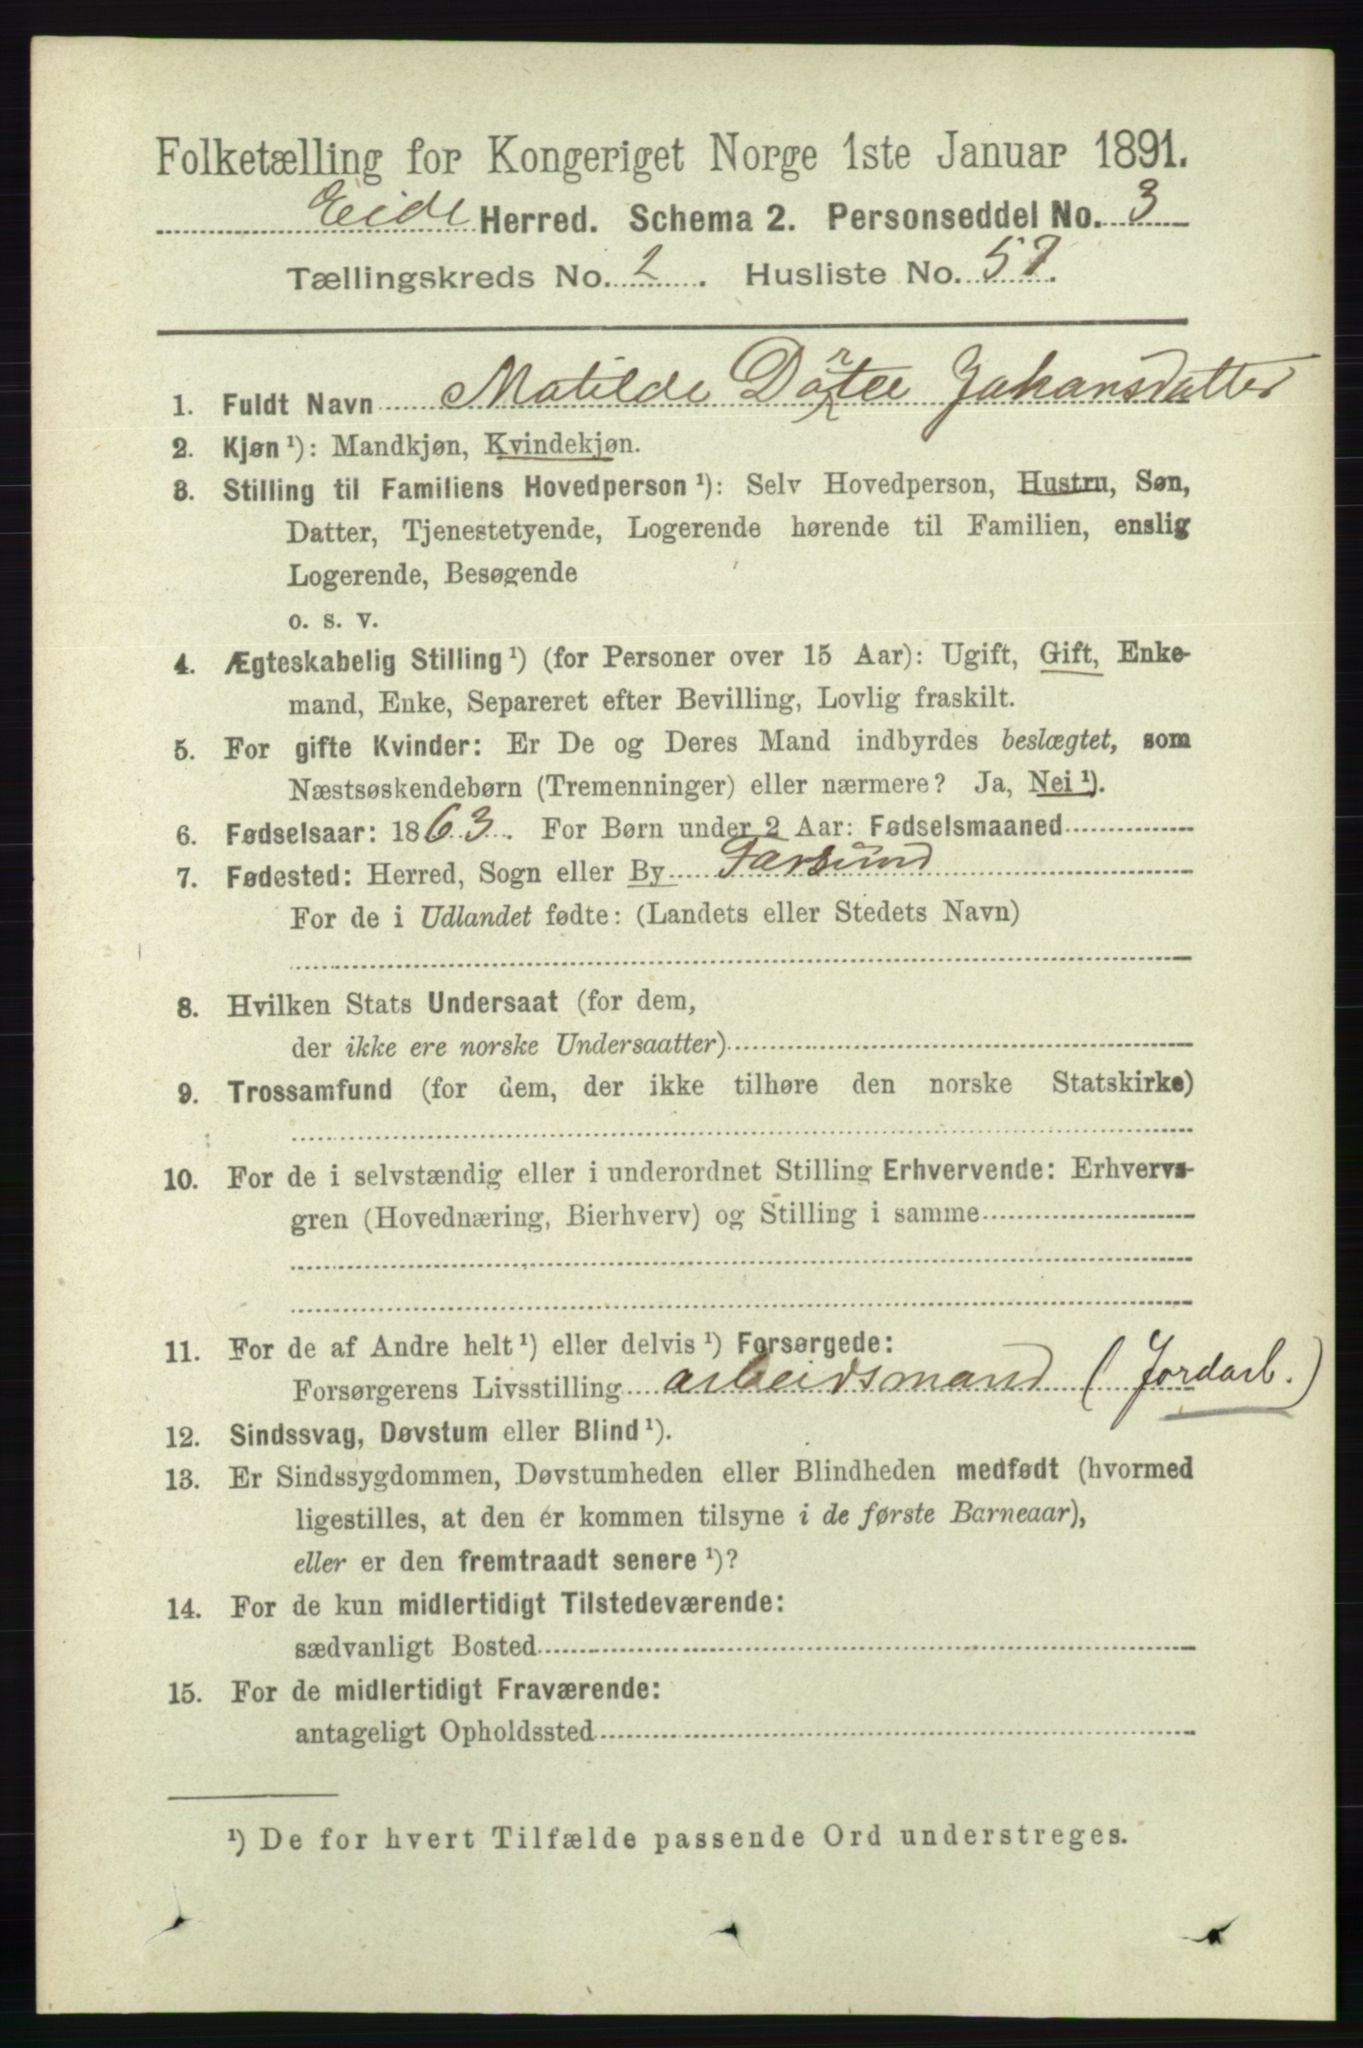 Folketælling for Kongeriget Norge 1ste Januar 1891.
Eide Herred. Schema 2. Personseddel No. 3
Tællingskreds No. 2. Husliste No. 57.
1. Fuldt Navn Matilde Dortee Johansdatter
2. Kjøn ¹): Mandkjøn, Kvindekjøn.
3. Stilling til Familiens Hovedperson ¹): Selv Hovedperson, Hustru, Søn,
Datter, Tjenestetyende, Logerende hørende til Familien, enslig
Logerende, Besøgende
o. s. v.
4. Ægteskabelig Stilling ¹) (for Personer over 15 Aar): Ugift, Gift, Enke-
mand, Enke, Separeret efter Bevilling, Lovlig fraskilt.
5. For gifte Kvinder: Er De og Deres Mand indbyrdes beslægtet, som
Næstsøskendebørn (Tremenninger) eller nærmere? Ja, Nei ¹).
6. Fødselsaar: 1863. For Børn under 2 Aar: Fødselsmaaned
7. Fødested: Herred, Sogn eller By Farsund
For de i Udlandet fødte: (Landets eller Stedets Navn)
8. Hvilken Stats Undersaat (for dem,
der ikke ere norske Undersaatter)
9. Trossamfund (for dem, der ikke tilhøre den norske Statskirke)
10. For de i selvstændig eller i underordnet Stilling Erhvervende: Erhvervs-
gren (Hovednæring, Bierhverv) og Stilling i samme
11. For de af Andre helt ¹) eller delvis ¹) Forsørgede:
Forsørgerens Livsstilling arbeidsmand (Jordarb.)
12. Sindssvag, Døvstum eller Blind ¹).
13. Er Sindssygdommen, Døvstumheden eller Blindheden medfødt (hvormed
ligestilles, at den er kommen tilsyne i de første Barneaar),
eller er den fremtraadt senere ¹)?
14. For de kun midlertidigt Tilstedeværende:
sædvanligt Bosted
15. For de midlertidigt Fraværende:
antageligt Opholdssted
¹) De for hvert Tilfælde passende Ord understreges.